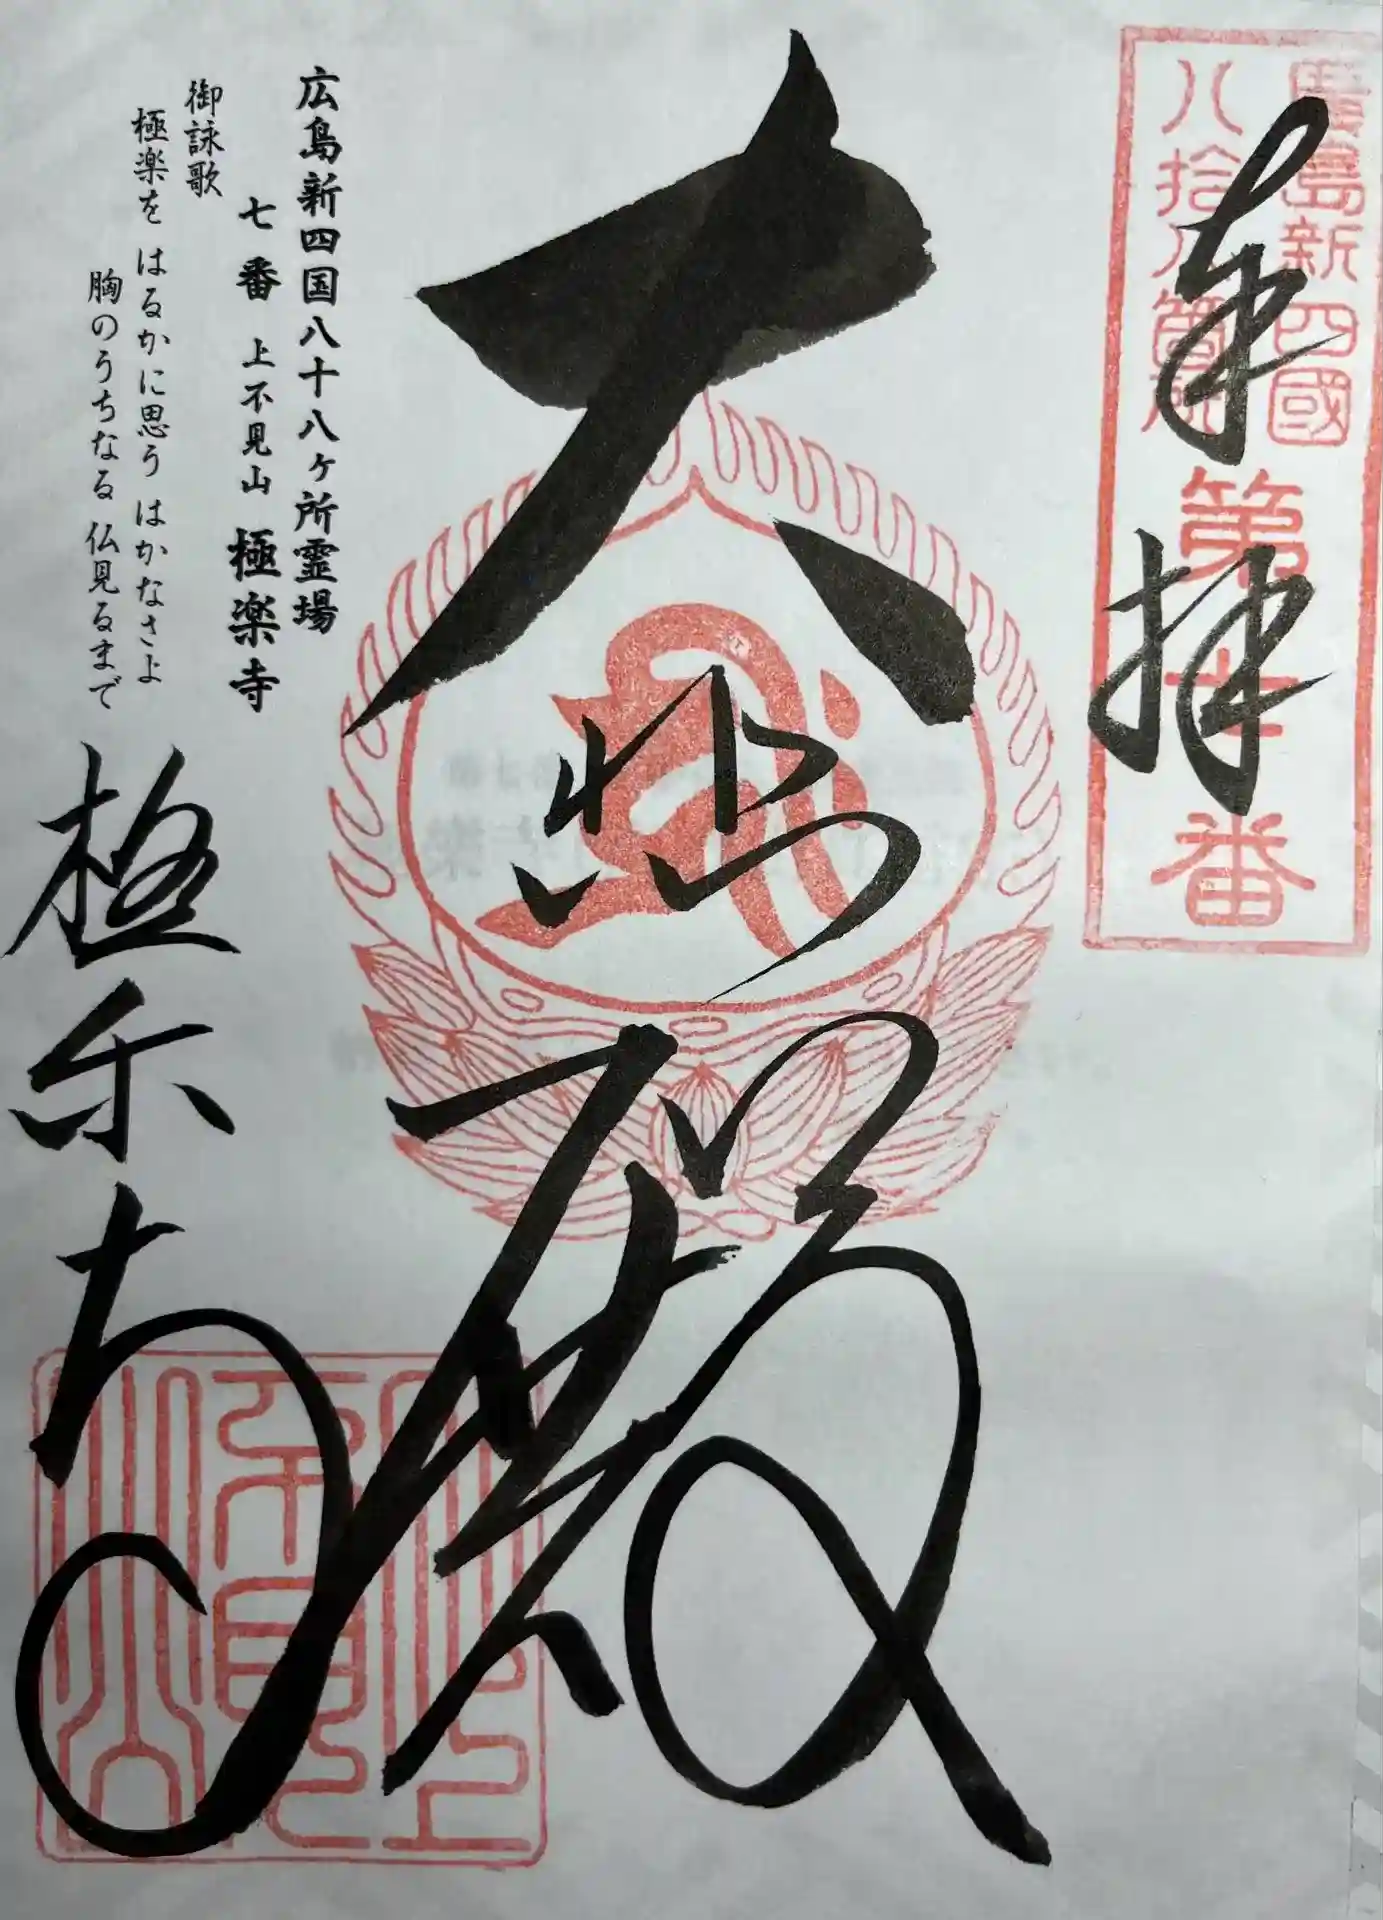 廣島新四國
八拾八箇所
第七番
奉拝
大悲殿
極楽寺
広島新四国八十八ヶ所霊場
七番 上不見山 極楽寺
御詠歌
極楽を はるかに思う はかなさよ
胸のうちなる 仏見るまで